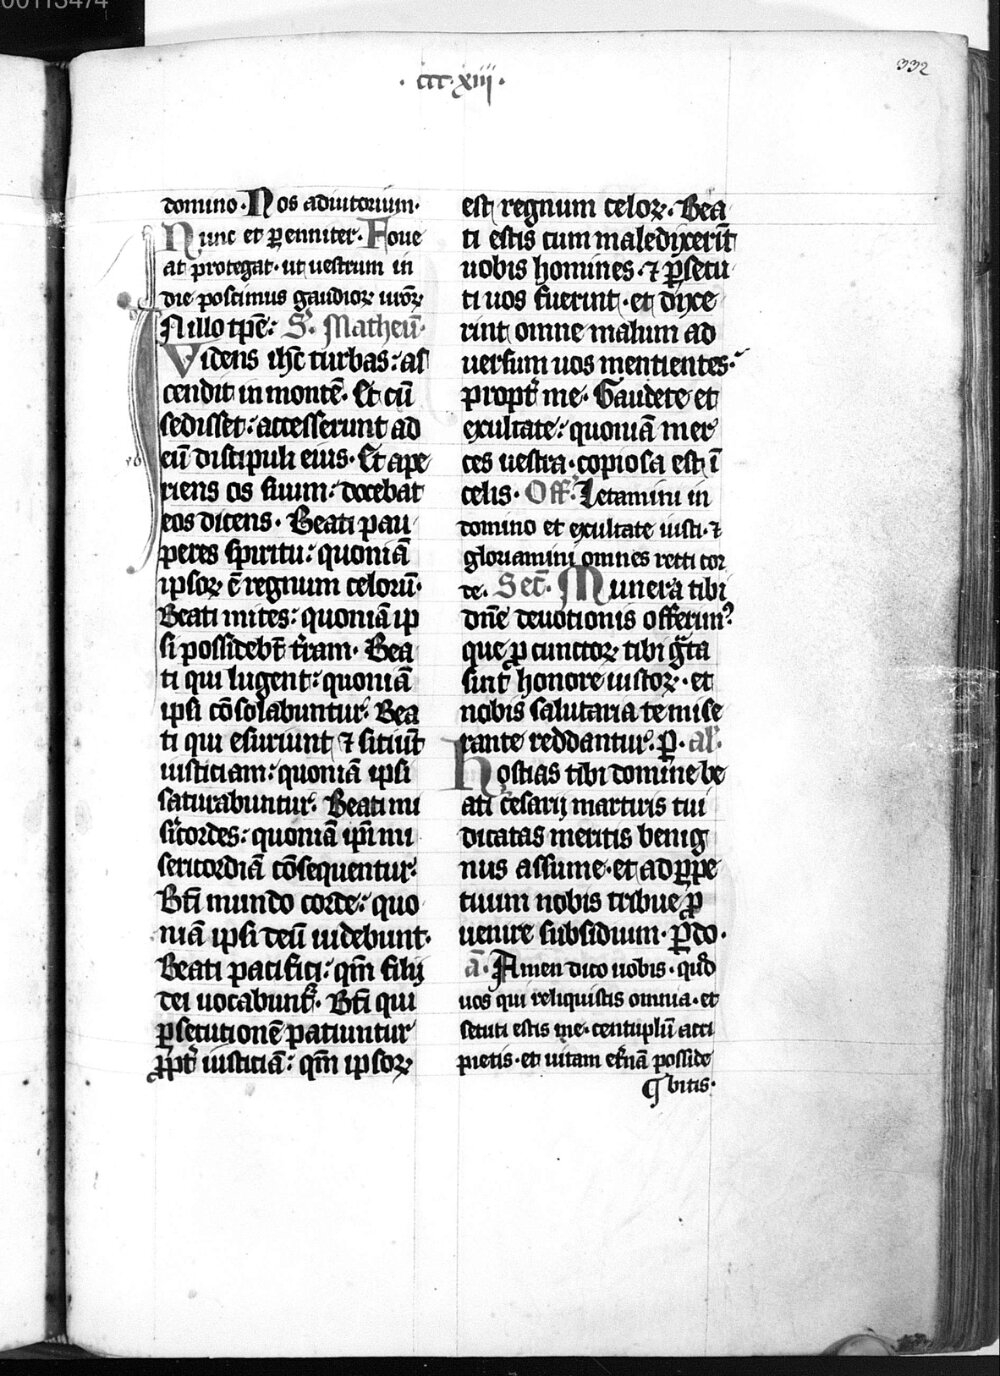 00113474
· ccc·xiii ·
332
domino· Nos adiutorium·
Nunc et ꝑenniter· Foue
at protegat· ut uestrum in
die poscimus gaudioꝝ
IN illo tp̄e: S. Matheū·
Videns ih̄c turbas: as
cendit in montē· Et cū
sedisset: accesserunt ad
eū discipuli eius· Et ape
riens os suum: docebat
eos dicens· Beati pau
peres spiritu: quoniā
ipsoꝝ ē regnum celorū·
Beati mites: quoniā ip
si possidebt̄ tr̄am· Bea
ti qui lugent: quoniā
ipsi cōsolabuntur· Bea
ti qui esuriunt ⁊ sitiūt
iusticiam: quoniā ipsi
saturabuntur· Beati mi
sīcordes: quoniā ip̄i mi
sericordiā cōsequentur·
Bt̄i mundo corde: quo
niā ipsi deū uidebunt·
Beati pacifici: qm̄ filij
dei uocabunt᷑· Bt̄i qui
ꝑsecutionē patiuntur
ꝓpt̄ iusticiā: qm̄ ipsoꝝ
est regnum celoꝝ· Bea
ti estis cum maledixerīt
uobis homines· ⁊ ꝑsecu
ti uos fuerint· et dixe
rint omne malum ad
uersum uos mentientes·
propt̄ me· Gaudete et
exultate: quoniā mer
ces uestra· copiosa est ī
celis· Off. Letamini in
domino et exultate iusti· ⁊
gloriamini omnes recti cor
de. Sec̄· Munera tibi
dn̄e deuotionis offerim᷒
que ꝓ cunctoꝝ tibi gͣta
sint honore iustoꝝ· et
nobis salutaria te mise
rante reddantur· ꝑ· al'·
Hostias tibi domine be
ati cesarij martiris tui
dicatas meritis benig
nus assume· et ad ꝑpe
tuum nobis tribue ꝓ
uenire subsidium· ꝑ do·
ā· Amen dico uobis· qd̄
uos qui reliquistis omnia· et
secuti estis me· centuplū acci
pietis· et uitam et̄nā posside
bitis·